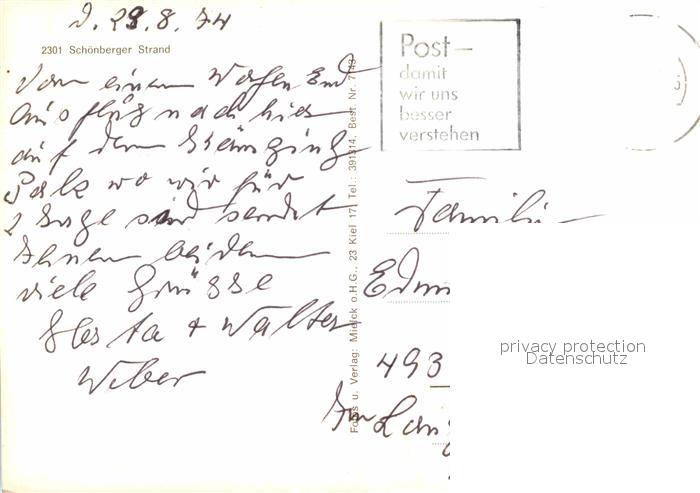 d. 29.8.74
2301 Schönberger Strand
Von einem Wochenend
Ausflug nach hier
auf dem Camping
Platz wo wir für
2 Tage sind sendet
Ihnen beiden
viele Grüsse
Herta + Walter
Weber
Fotos u. Verlag: Mielck o.H.G., 23 Kiel 17, Tel.: 391814, Best. Nr.
Post-
damit
wir uns
besser
verstehen
Familie
493
privacy protection
Datenschutz